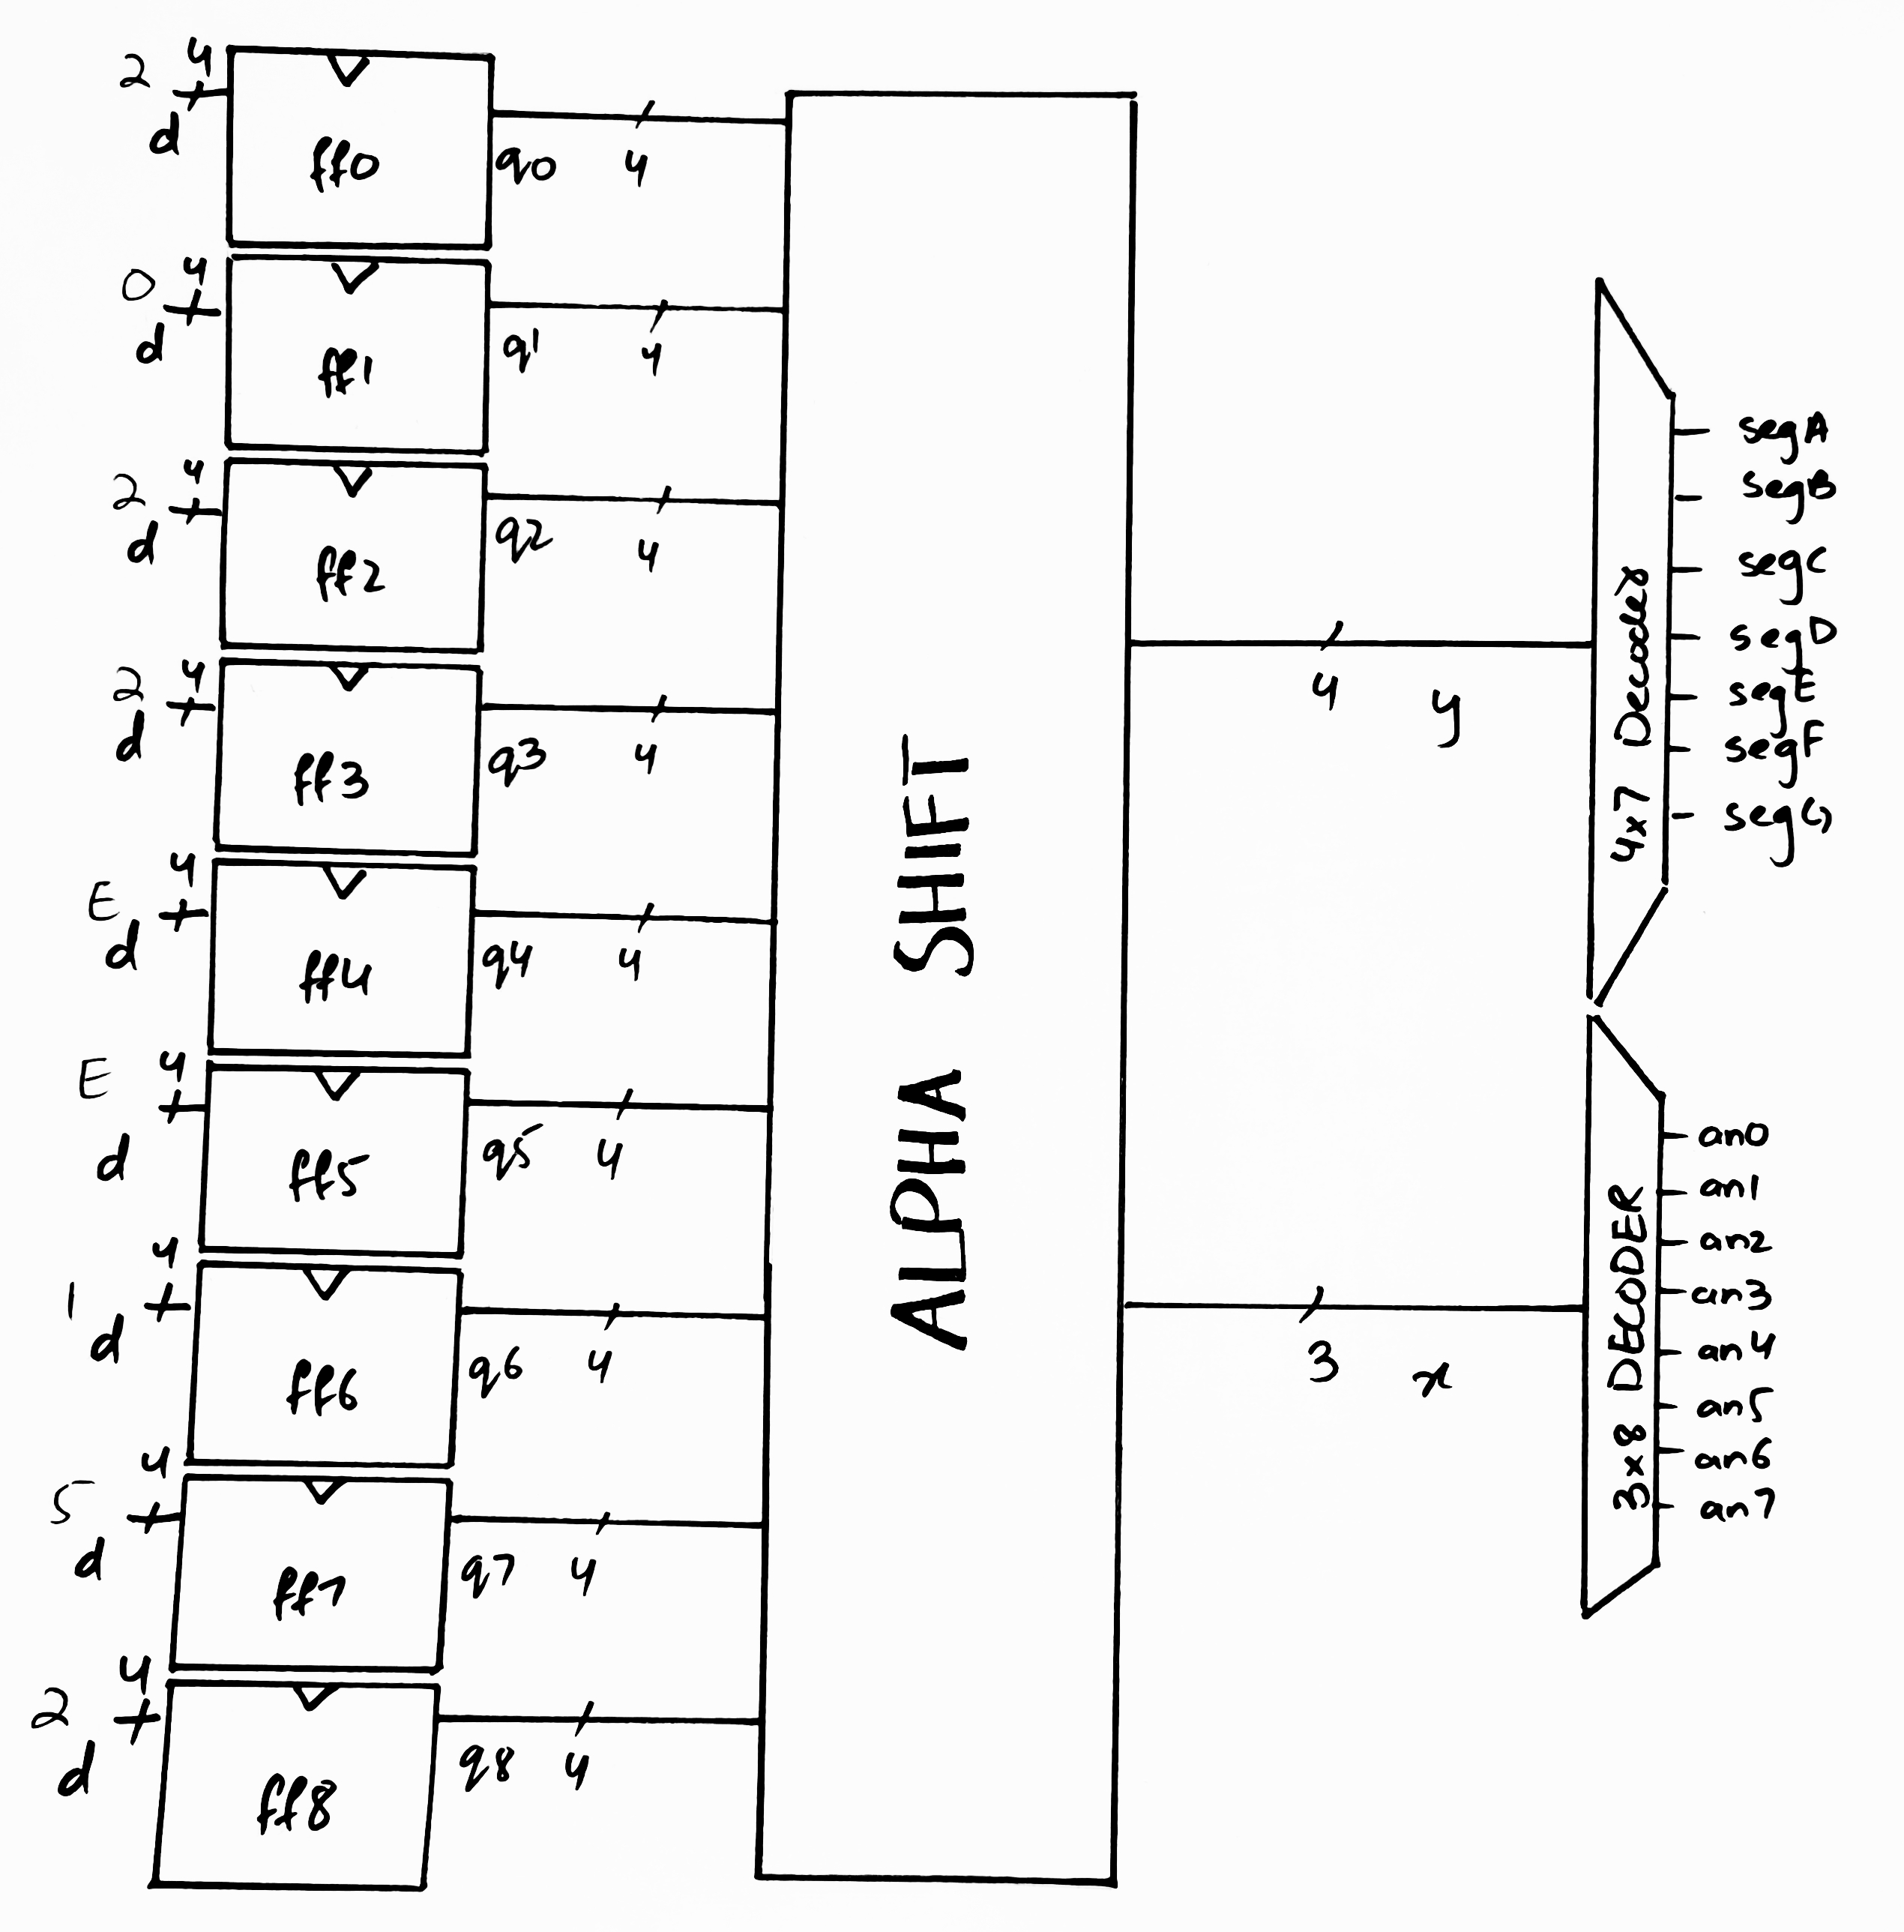 2 4
d
ff0
q0 4
0 4
d
ff1
q1 4
2 4
d
ff2
q2 4
2 4
d
ff3
q3 4
E 4
d
ff4
q4 4
E 4
d
ff5
q5 4
1 4
d
ff6
q6 4
5 4
d
ff7
q7 4
2 4
d
ff8
q8 4
ALPHA SHIFT
4 y
3 x
4x7 Decoder
segA
segB
segC
segD
segE
segF
segG
3x8 DECODER
an0
an1
an2
an3
an4
an5
an6
an7